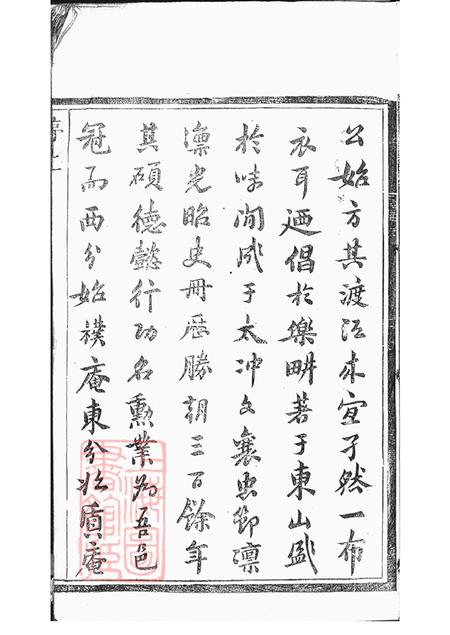 公始方其渡江來宣孑然一布
衣耳迺倡於樂畊著于東山盛
於味閒風于太冲文襄忠節凜
凜光昭史冊歷勝朝三百餘年
其碩德懿行功名勳業爲吾邑
冠而西分始樸庵東分始質庵